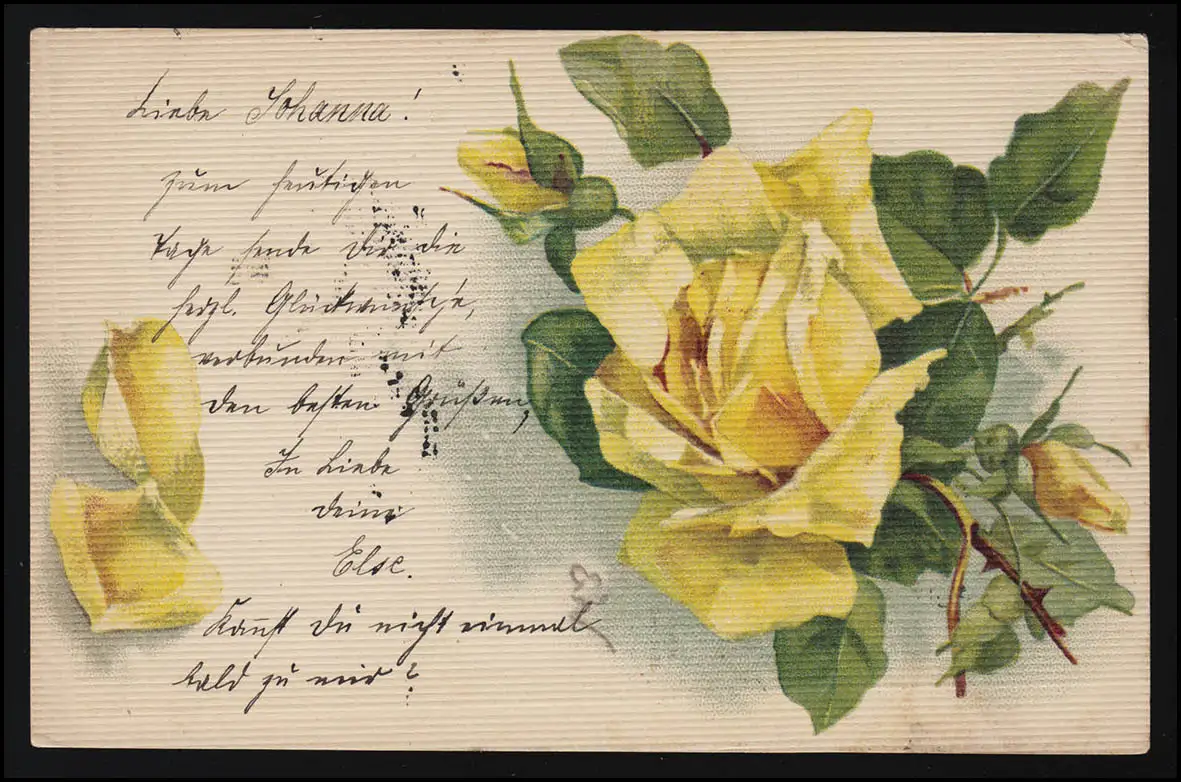 Liebe Johanna!
Zum heutigen
Tage sende Dir die
herzl. Glückwünsche,
verbunden mit
den besten Grüßen,
In Liebe
Deine
Else.
Kannst Du nicht einmal
bald zu mir?